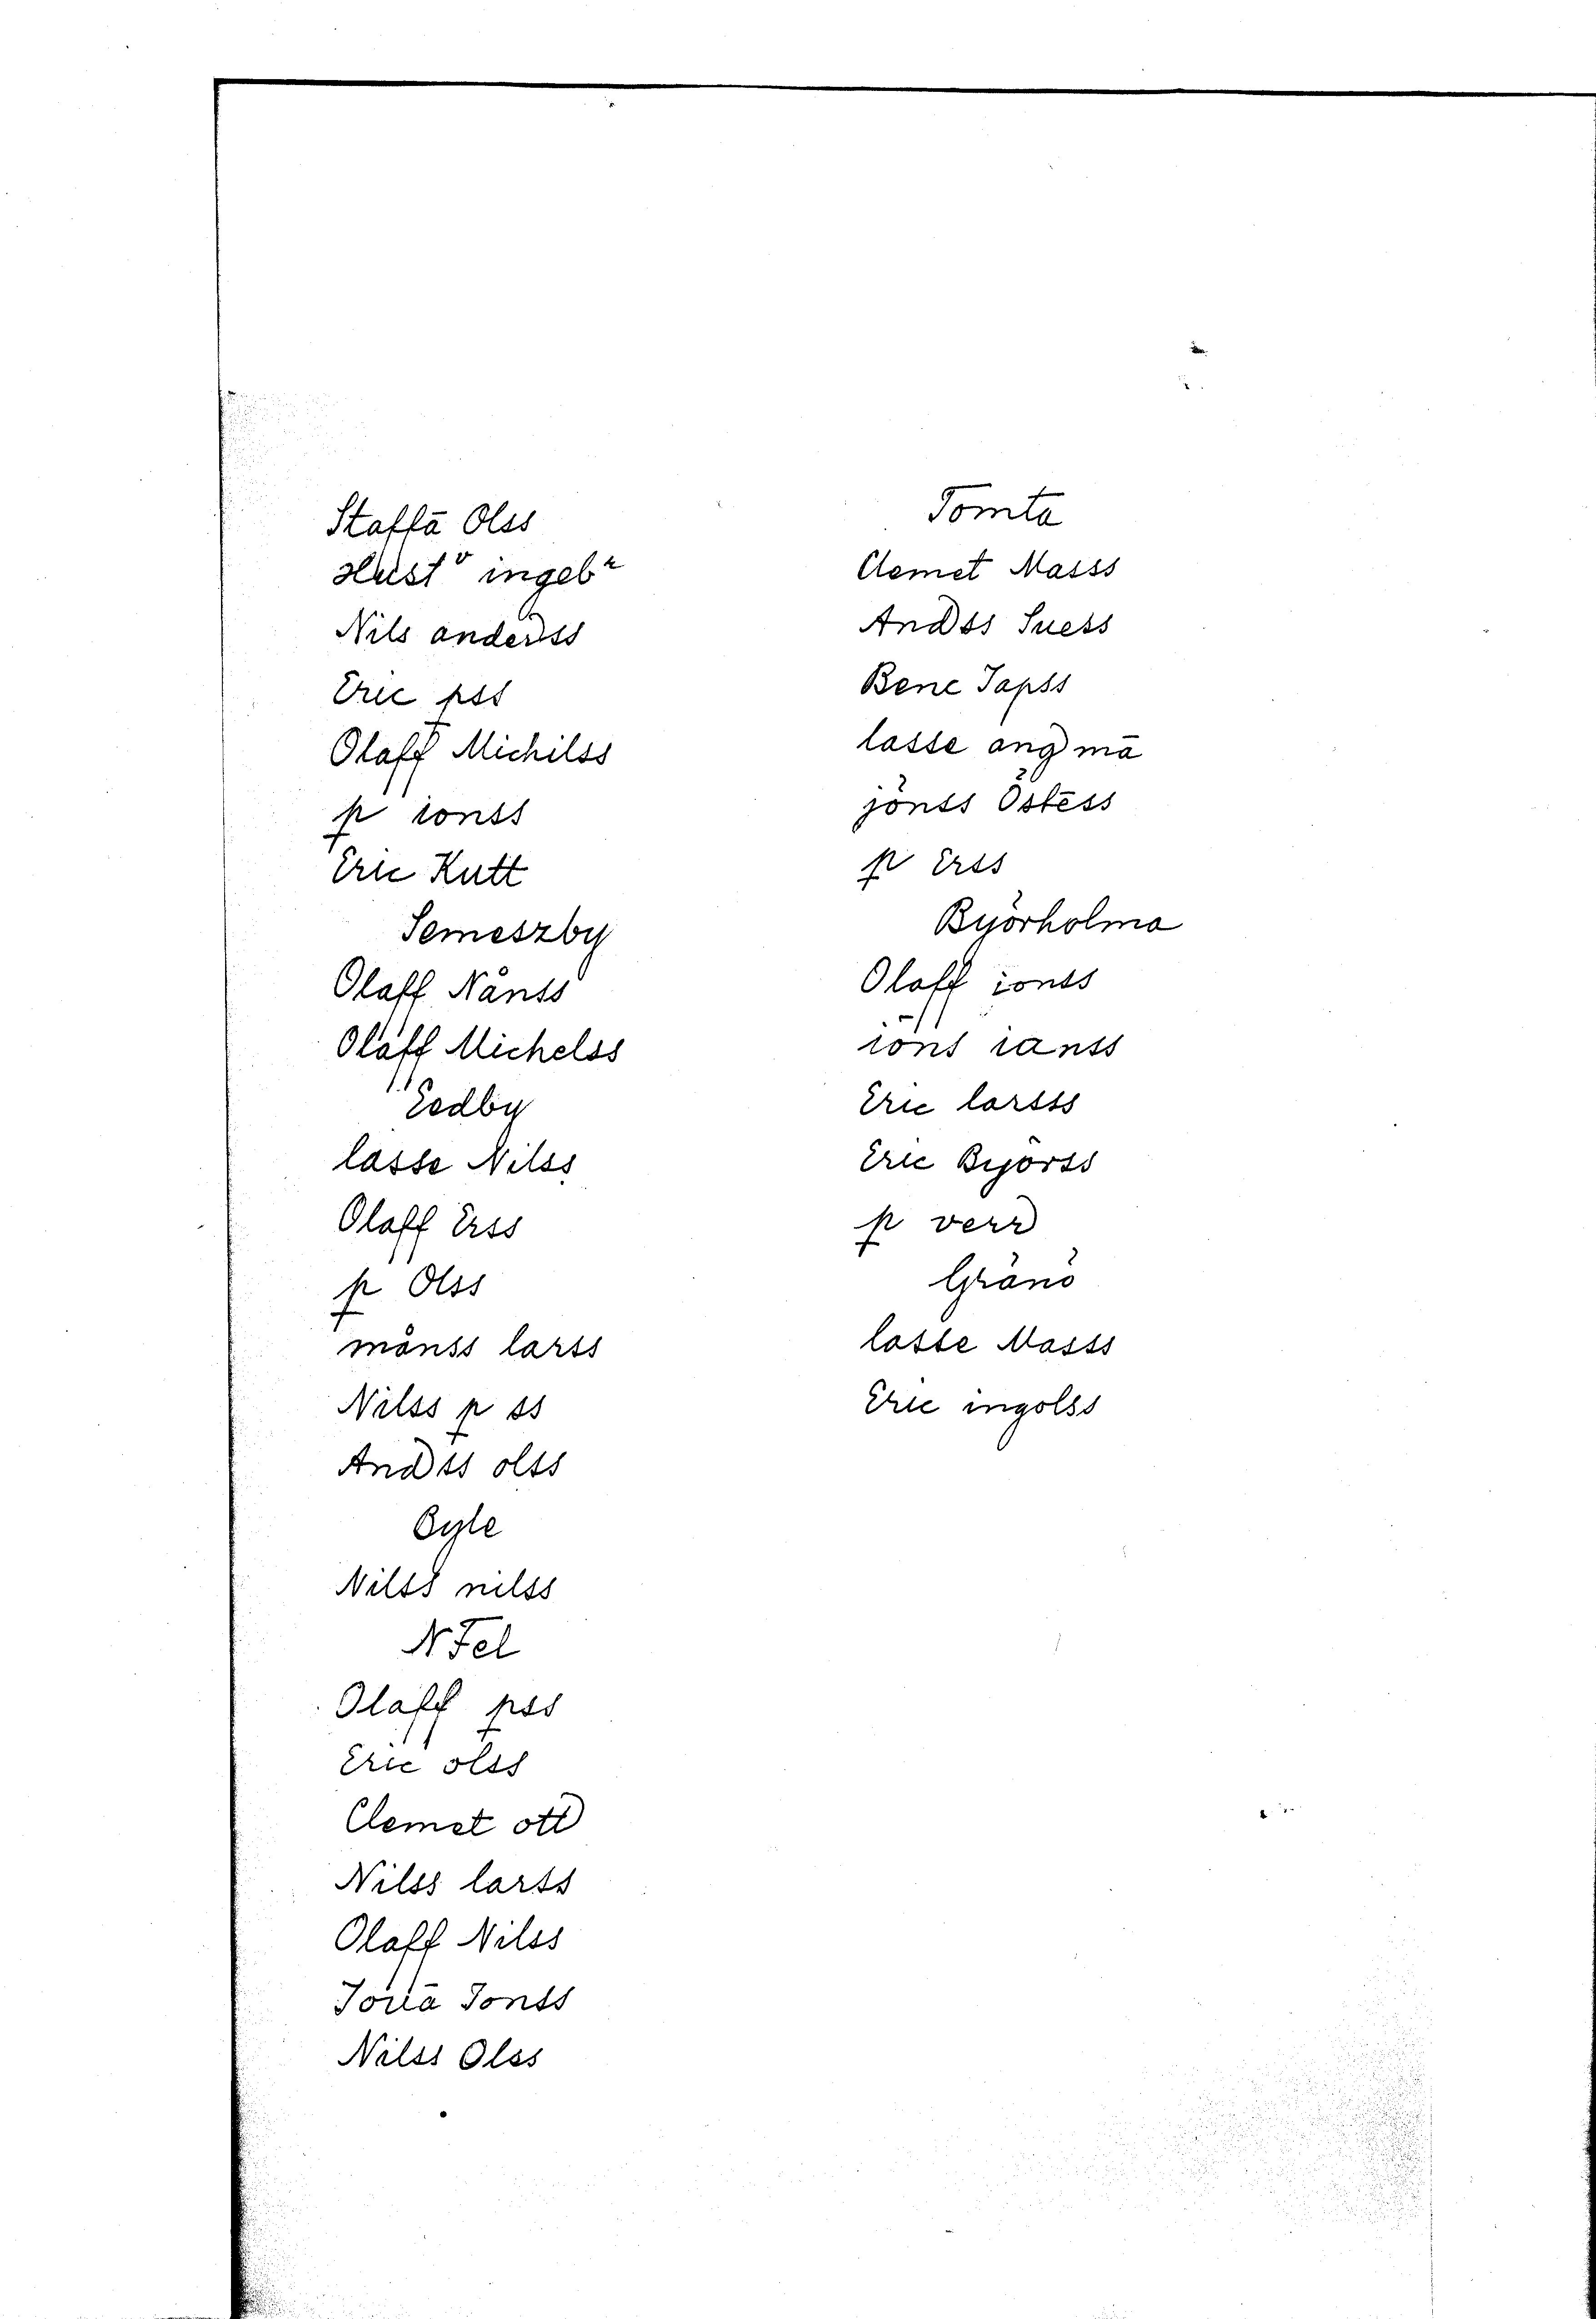 Staffā Olss
Hust^v ingeb^r
Nils anderss
Eric pss
Olaff Michilss
p ionss
Eric Kutt
Semeszby
Olaff Nånss
Olaff Michelss
Eedby
lasse Nilss
Olaff Erss
p Olss
månss larss
Nilss p ss
Andss olss
Byle
Nilss nilss
N Fel
Olaff pss
Eric olss
Clemet ott
Nilss larss
Olaff Nilss
Joriā Jonss
Nilss Olss
Tomta
Clemet Masss
Andss Suess
Bene Japss
lasse ang mā
jönss Östēss
p Erss
Byörholma
Olaff ionss
iöns ianss
Eric larsss
Eric Byörss
p verr
Gränö
lasse Masss
Eric ingolss